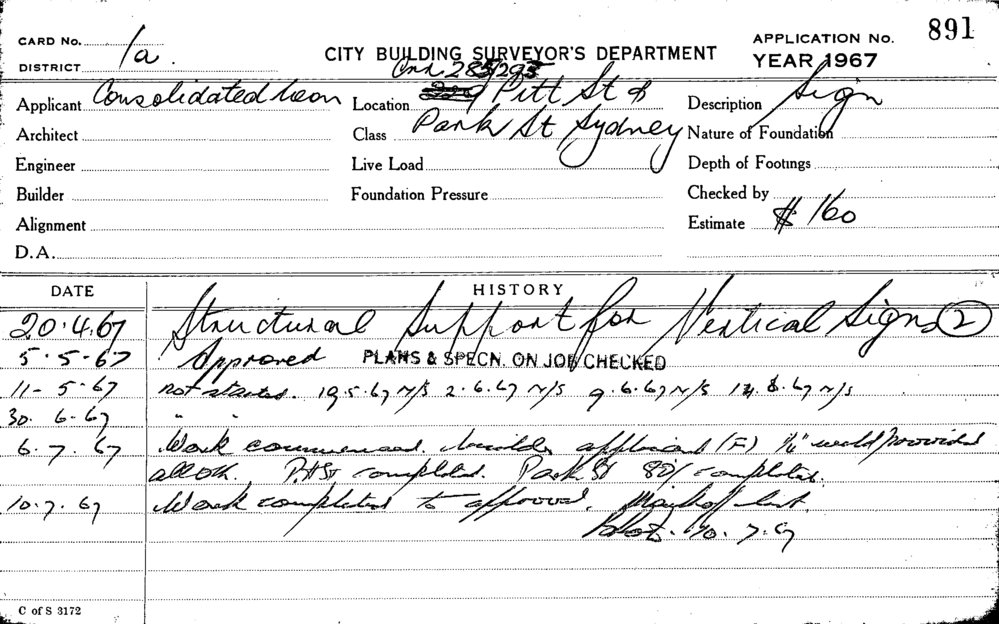 CARD No. 1a. CITY BUILDING SURVEYOR'S DEPARTMENT APPLICATION No. 891
DISTRICT YEAR 1967
Cnr 285/295
Applicant Consolidated Loan Location Pitt St & Description Sign
Architect Class Park St Sydney Nature of Foundation
Engineer Live Load Depth of Footings
Builder Foundation Pressure Checked by
Alignment Estimate $160
D.A.
DATE HISTORY
20.4.67 Structural Support for Vertical Signs 2
5.5.67 Approved PLANS & SPECN. ON JOB CHECKED
11-5.67 not started. 19.5.67 N/S 2.6.67 N/S 9.6.67 N/S 14.6.67 N/S
30.6.67 " "
6.7.67 Work commenced. builder applicant (F) 1/4" weld provided
all ok. Pitt St completed. Park St 80% completed.
10.7.67 Work completed to approval.
10.7.67
C of S 3172